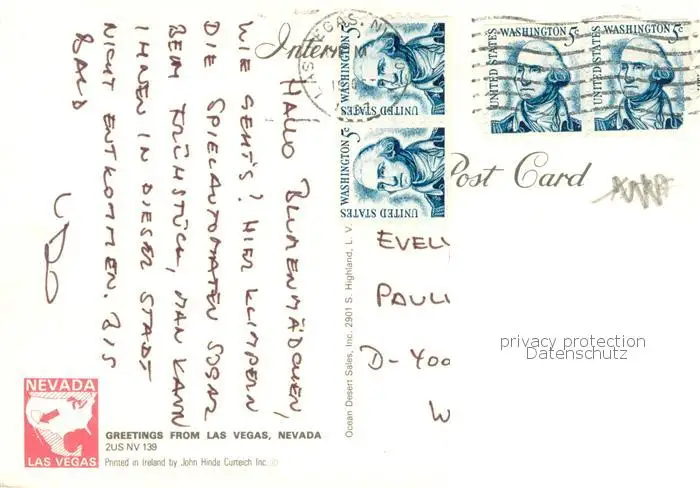 HALLO BLUMENMÄDCHEN,
WIE GEHT'S? HIER KLIMPERN
DIE SPIELAUTOMATEN SOGAR
BEIM FRÜHSTÜCK, MAN KANN
IHNEN IN DIESER STADT
NICHT ENTKOMMEN. BIS
BALD
UNITED STATES
WASHINGTON 5c
UNITED STATES
WASHINGTON 5c
UNITED STATES
WASHINGTON 5c
UNITED STATES
WASHINGTON 5c
LAS VEGAS, NV
Post Card
EVEL
PAUL
D-400
W
privacy protection
Datenschutz
Ocean Desert Sales, Inc., 2901 S. Highland, L. V.
NEVADA
LAS VEGAS
GREETINGS FROM LAS VEGAS, NEVADA
2US NV 139
Printed in Ireland by John Hinde Curteich Inc. ©